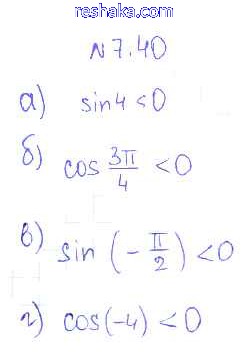 reshaka.com
№7.40
а) sin4<0
б) cos 3π/4 <0
в) sin (-π/2)<0
г) cos(-4)<0